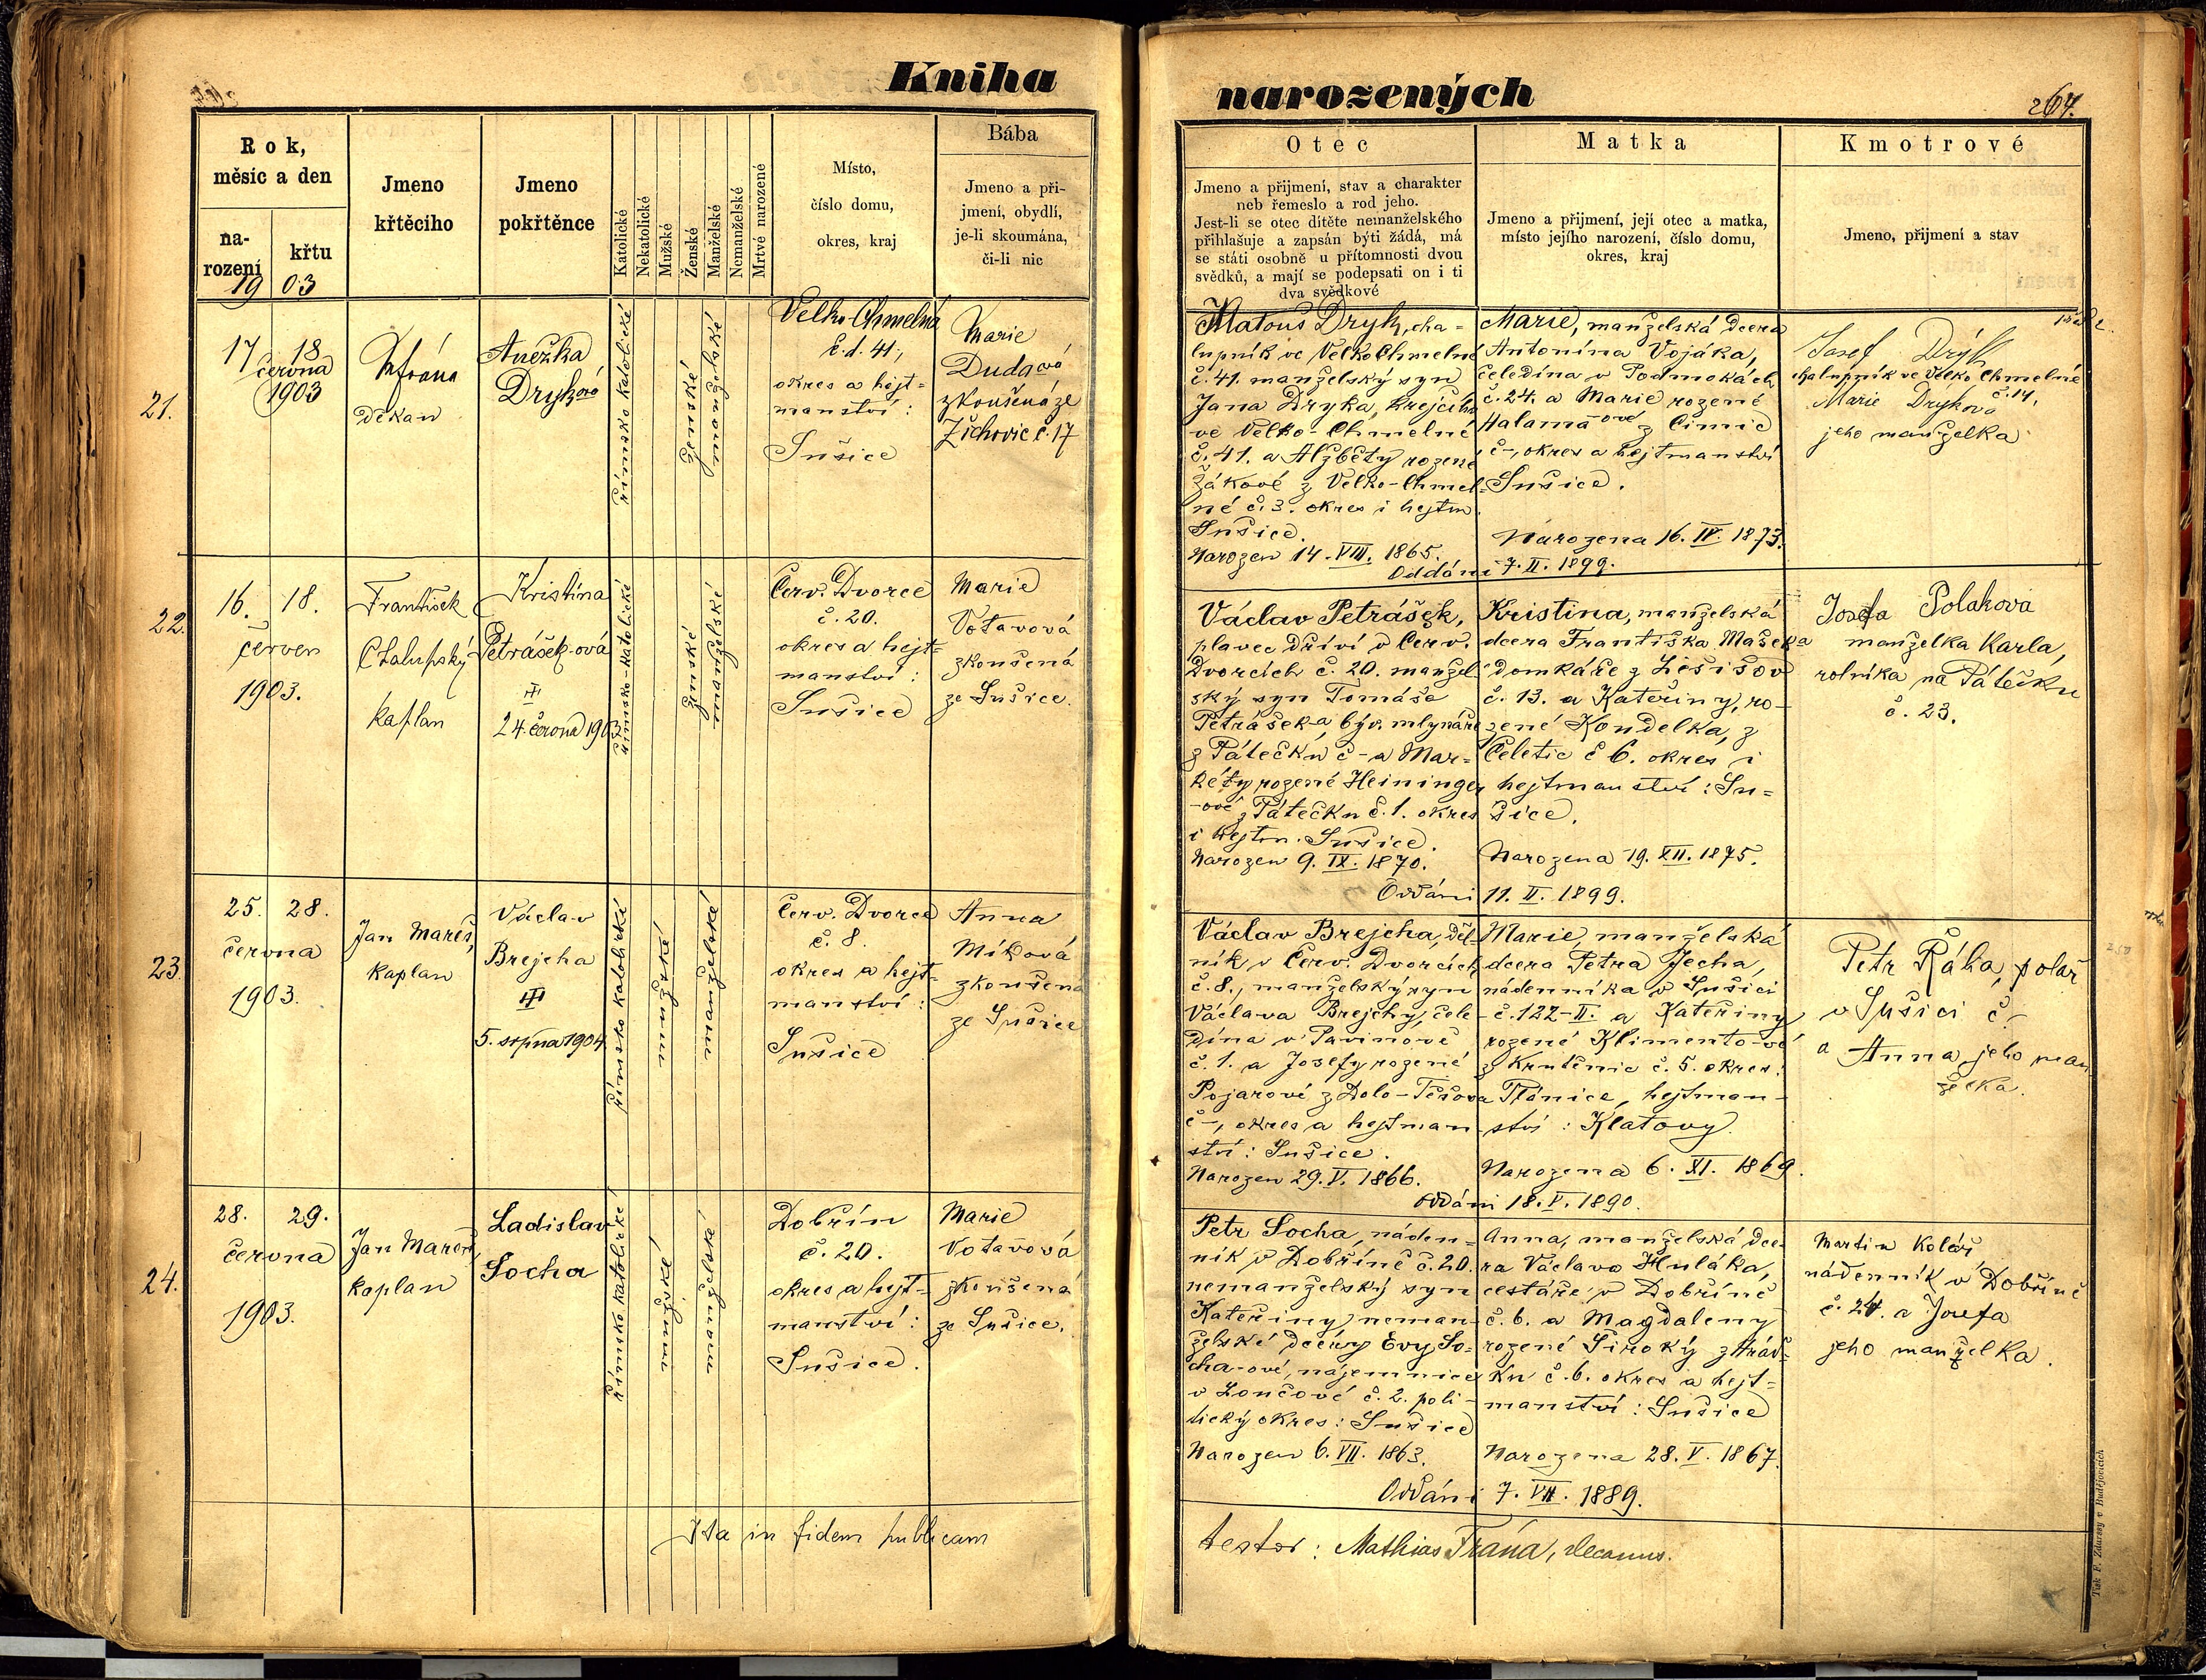 Kniha
narozených
267.
Rok,
měsíc a den
na-
rození
křtu
1903
Jmeno
křtěcího
Jmeno
pokřtěnce
Katolické
Nekatolické
Mužské
Ženské
Manželské
Nemanželské
Mrtvé narozené
Místo,
číslo domu,
okres, kraj
Bába
Jmeno a při-
jmení, obydlí,
je-li skoumána,
či-li nic
Otec
Jmeno a přijmení, stav a charakter
neb řemeslo a rod jeho.
Jest-li se otec dítěte nemanželského
přihlašuje a zapsán býti žádá, má
se státi osobně u přítomnosti dvou
svědků, a mají se podepsati on i ti
dva svědkové
Matka
Jmeno a přijmení, její otec a matka,
místo jejího narození, číslo domu,
okres, kraj
Kmotrové
Jmeno, přijmení a stav
21.
17 18
června
1903
Frána
děkan
Anežka
Dryková
římsko katolické
ženské
manželské
Velko-Chmelná
č.d. 41,
okres a hejt-
manství:
Sušice
Marie
Dudaová
zkoušená ze
Žichovic č. 17
Matouš Dryk, cha-
lupník ve Velko Chmelné
č. 41. manželský syn
Jana Dryka, krejčího
ve Velko-Chmelné
č. 41. a Alžběty rozené
Žákové z Velko-Chmel-
né č. 3. okres i hejtm.
Sušice.
Narozen 14. VIII. 1865.
Marie, manželská dcera
Antonína Vojáka,
čeledína v Podmokách
č. 24. a Marie rozené
Halamaové z Čimic
č-, okres a hejtmanství
Sušice.
Narozena 16. IV. 1873.
Oddáni 7. II. 1899.
Josef Drýk
chalupník ve Velko Chmelné
č. 14,
Marie Drykova
jeho manželka
22.
16. 18.
červen
1903.
František
Chalupský
kaplan
Kristina
Petrášek-ová
III
24. června 1903
římsko-katolické
ženské
manželské
Červ. Dvorce
č. 20.
okres a hejt-
manství:
Sušice
Marie
Votavová
zkoušená
ze Sušice.
Václav Petrášek,
plavec dříví v Červ.
Dvorcích č. 20. manžel-
ský syn Tomáše
Petrášek-a, býv. mlynáře
z Pátečku č - a Mar-
kéty rozené Heininger
-ové z Pátečku č. 1. okres
i hejtm. Sušice.
Narozen 9. IX. 1870.
Kristina, manželská
dcera Františka Mašek-a
domkáře z Lešišov
č. 13. a Kateřiny, ro-
zené Kondelka, z
Čeletic č 6. okres i
hejtmanství: Su-
šice.
Narozena 19. XII. 1875.
Oddáni 11. II. 1899.
Josefa Polakova
manželka Karla,
rolníka na Pátečku
č. 23.
23.
25. 28.
června
1903.
Jan Mareš,
kaplan
Václav
Brejcha
III
5. srpna 1904
římsko katolické
mužské
manželské
Červ. Dvorce
č. 8.
okres a hejt-
manství:
Sušice
Anna
Míková
zkoušená
ze Sušice
Václav Brejcha, děl-
ník v Červ. Dvorcích
č. 8., manželský syn
Václava Brejchy, čele-
dína v Pavinově
č. 1. a Josefy rozené
Pojarové z Dolo-Těšova
č -, okres a hejtman-
ství: Sušice.
Narozen 29. V. 1866.
Marie, manželská
dcera Petra Jecha,
nádenníka v Sušici
č. 122-II. a Kateřiny
rozené Klimento-vé
z Krutěnic č. 5. okres:
Plánice, hejtman-
ství: Klatovy.
Narozena 6. XI. 1869.
Oddáni 18. V. 1890.
Petr Řáha, polař
v Sušici č.-
a Anna jeho man
želka.
24.
28. 29.
června
1903.
Jan Mareš,
kaplan
Ladislav
Socha
římsko katolické
mužské
manželské
Dobřín
č. 20.
okres a hejt-
manství:
Sušice.
Marie
Votavová
zkoušená
ze Sušice.
Petr Socha, náden-
ník v Dobříně č. 20.
nemanželský syn
Kateřiny, neman-
želské dcéry Evy So-
cha-ové, nájemnice
v Lončově č. 2. poli-
tický okres: Sušice
Narozen 6. VII. 1863.
Anna, manželská dce-
ra Václava Huláka,
cestáře v Dobříně
č. 6. a Magdaleny
rozené Široký z Hrád-
ku č. 6. okres a hejt-
manství: Sušice
Narozena 28. V. 1867.
Oddáni 7. VII. 1889.
Martin Kolář
nádenník v Dobříně
č. 24. a Josefa
jeho manželka.
Ita in fidem publicam
testor: Mathias Frána, decanus.
Tisk F. Zdarssy v Budějovicích